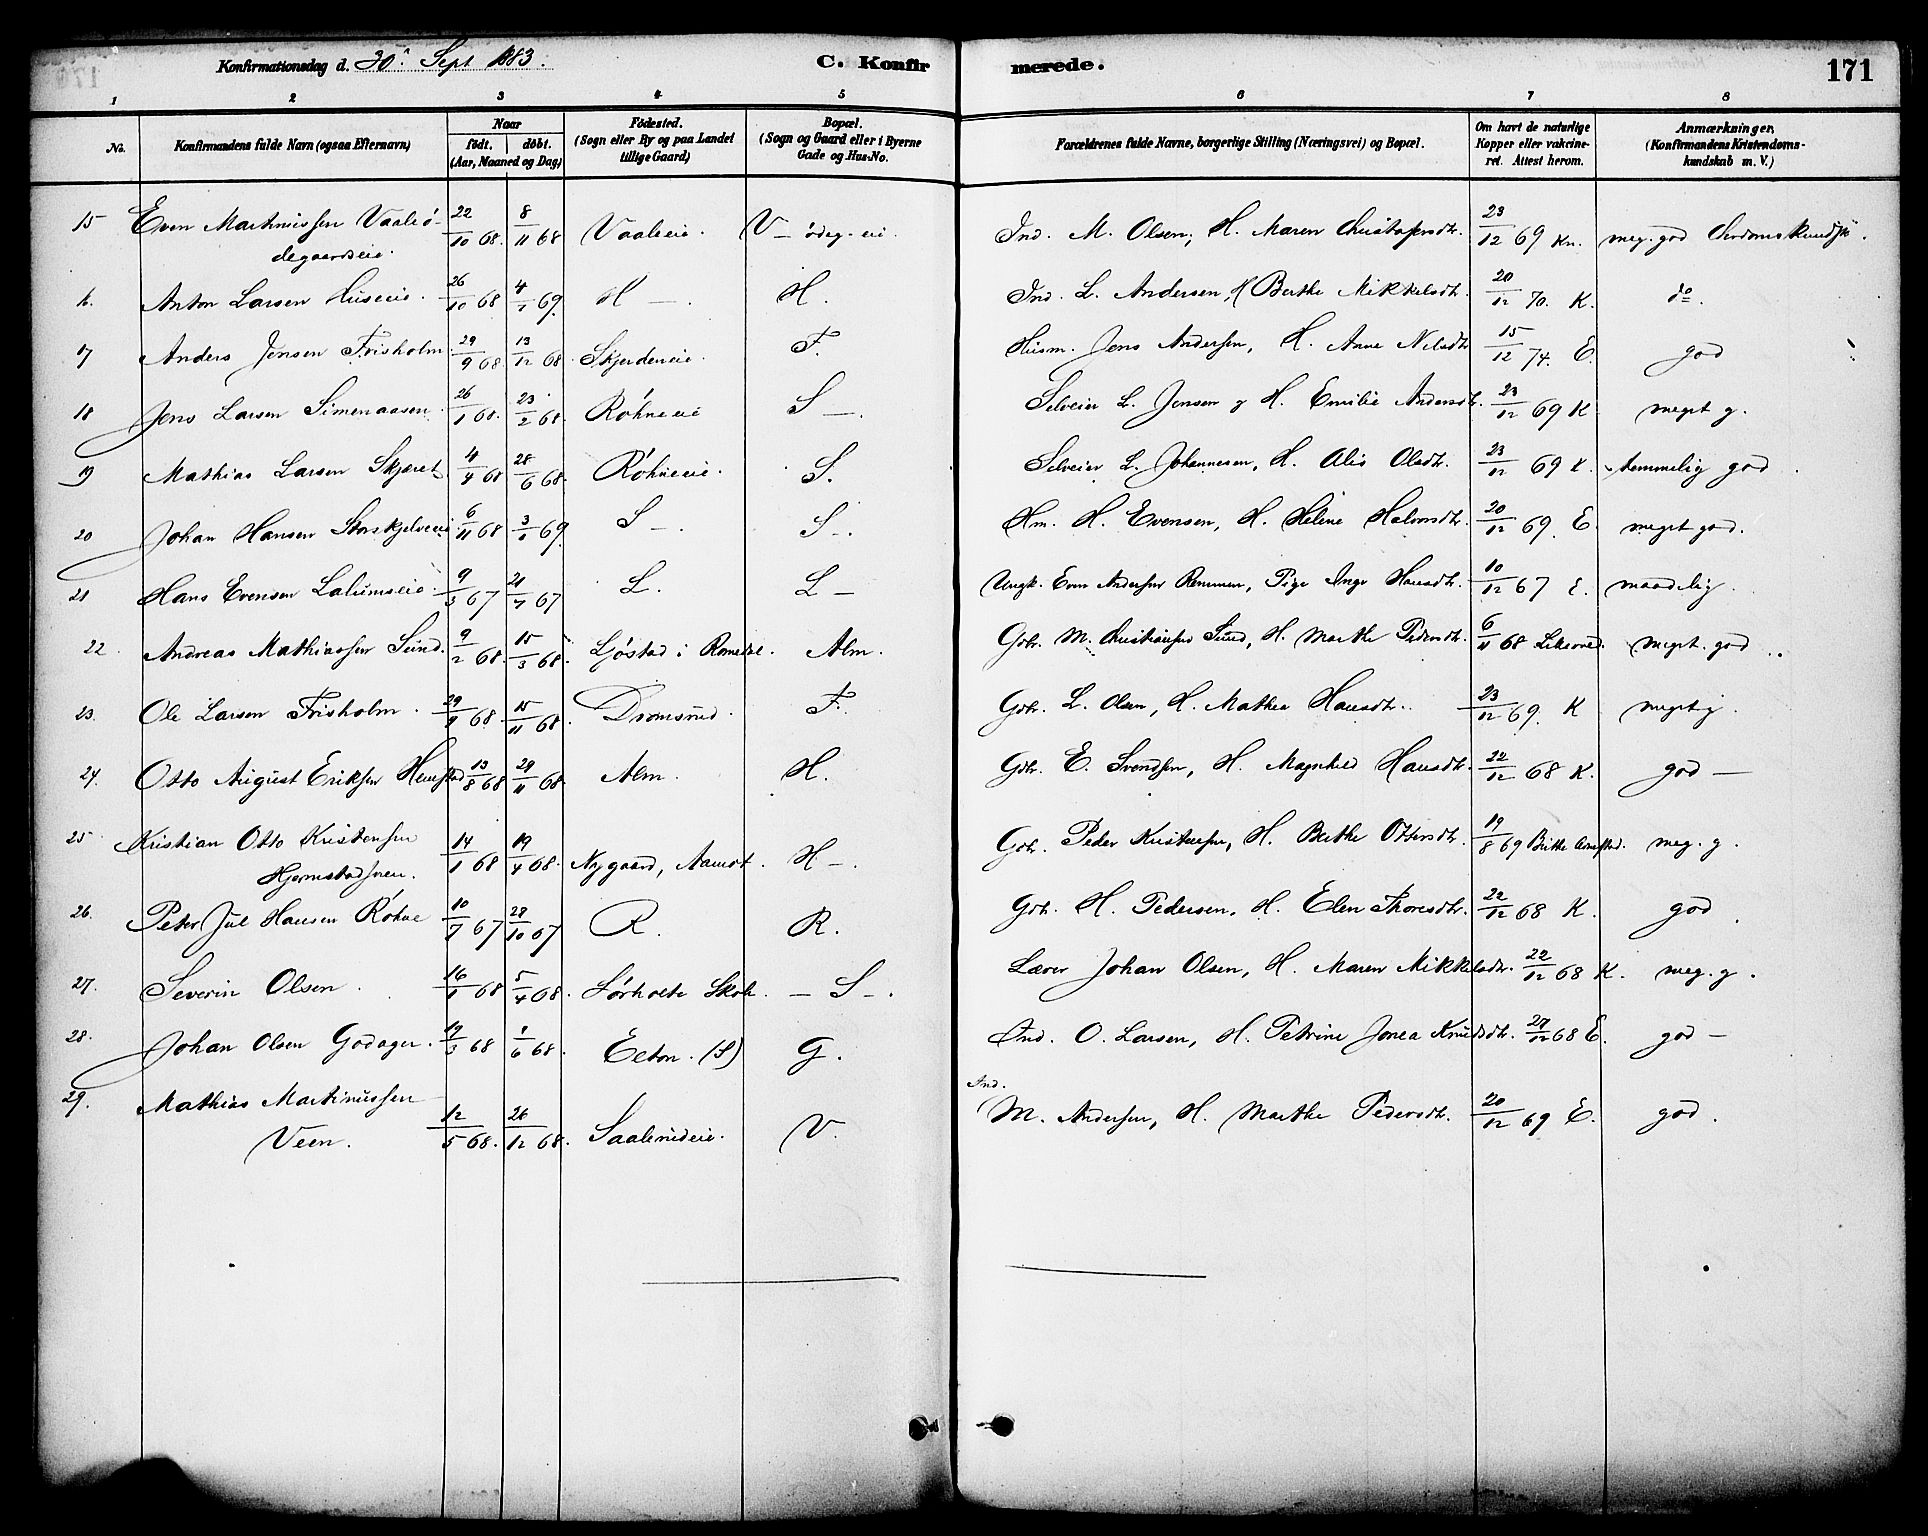 Konfirmationsdag d. 30' Sept 1883. C. Konfirmerede. 171
1 2 3 4 5 6 7 8
No. Konfirmandens fulde Navn (ogsaa Efternavn) Naar födt. döbt. (Aar, Maaned og Dag) Födested. (Sogn eller By og paa Landet tillige Gaard) Bopæl. (Sogn og Gaard eller i Byerne Gade og Hus-No. Forældrenes fulde Navne, borgerlige Stilling (Næringsvei) og Bopæl. Om havt de naturlige Kopper eller vakcineret. Attest herom. Anmærkninger. (Konfirmandens Kristendomskundskab m. V.)
15 Even Martinussen Vaalsö- 22/10 68. 8/11 68 Vaaleeie. V_ ödeg. ei. Ind. M. Olsen, H. Maren Christofersdtr. 23/12 69 Kn. meg. god
degaardseie.
16. Anton Larsen Huseeie. 26/10 68 4/1 69. H _. H. Ind. L. Andersen, H Berthe Mikkelsdtr. 20/12 70. K. do.
17 Anders Jensen Frisholm 29/9 68. 13/12 68. Skjerdeneie. F. Husm. Jens Andersen, H. Anne Nilsdtr 15/12 74. E. god
18 Jens Larsen Simenaasen. 26/1 68. 23/2 68. Röhneeie S _. Selveier L. Jensen og H. Emilie Andersdtr. 23/12 69 K meget g.
19 Mathias Larsen Skjæret 4/4 68 28/6 68. Röhneeie. S. Selveier L. Johannesen, H. Alis Olsdtr. 23/12 69 K. temmelig god.
20 Johan Hansen Storskjelveeie 6/11 68 3/1 69. S _. S _. Hm. H. Evensen, H. Helene Halvorsdtr. 20/12 69. E. meget god.
21 Hans Evensen Lalumseie. 9/3 67 21/4 67 L. L _ Ungk. Even Andersen Remmen, Pige Inge Hansdtr. 10/12 67 E. maadelig.
22. Andreas Mathiassen Sund. 9/2 68. 15/3 68. Ljöstad i Romedal. Alm. Gbr. M. Christiansen Sund, H. Marthe Pedersdtr. 6/11 68 meget. god.
23. Ole Larsen Frisholm. 29/9 68. 15/11 68. Dromsrud. F. Gbr. L. Olsen, H. Mathea Hansdtr. 23/12 69. K meget g.
24. Otto August Eriksen Hemstad 13/8 68 29/11 68. Alm. H. Gbr. E. Svendsen, H. Magnhild Hansdtr. 22/12 68 K. god _
25 Kristian Otto Kristensen 14/1 68 19/4 68. Nygaard, Aamot. H _. Gbr. Peder Kristensen, H. Berthe Ottersdtr. 19/8 69 meg. g.
Hjermstadsveen.
26. Peter Jul Hansen Röhne 10/7 67 28/10 67 R. R. Gbr. H. Pedersen, H. Elen Thoresdtr. 22/12 68 K. god.
27. Severin Olsen. 16/1 68 5/4 68. Sörholte Skole. _ S _. Lærer Johan Olsen, H. Maren Mikkelsdtr. 22/12 68 K. meg. g.
28. Johan Olsen Godager. 19/3 68 1/6 68. Eeton. (S) G. Ind. O. Larsen, H. Petrine Jonea Knudsdtr. 27/12 68 E. god _
29. Mathias Martinussen Ind.
Veen. 12/5 68. 26/12 68. Saalerudeie. V. M. Andersen, H. Marthe Pedersdtr. 20/12 69 E. god.